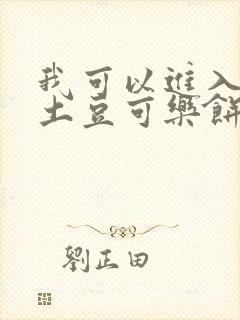 我可以進入
土豆可樂餅
劉正田